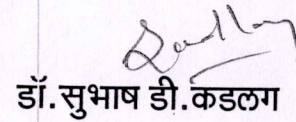 डॉ.सुभाष डी.कडलग